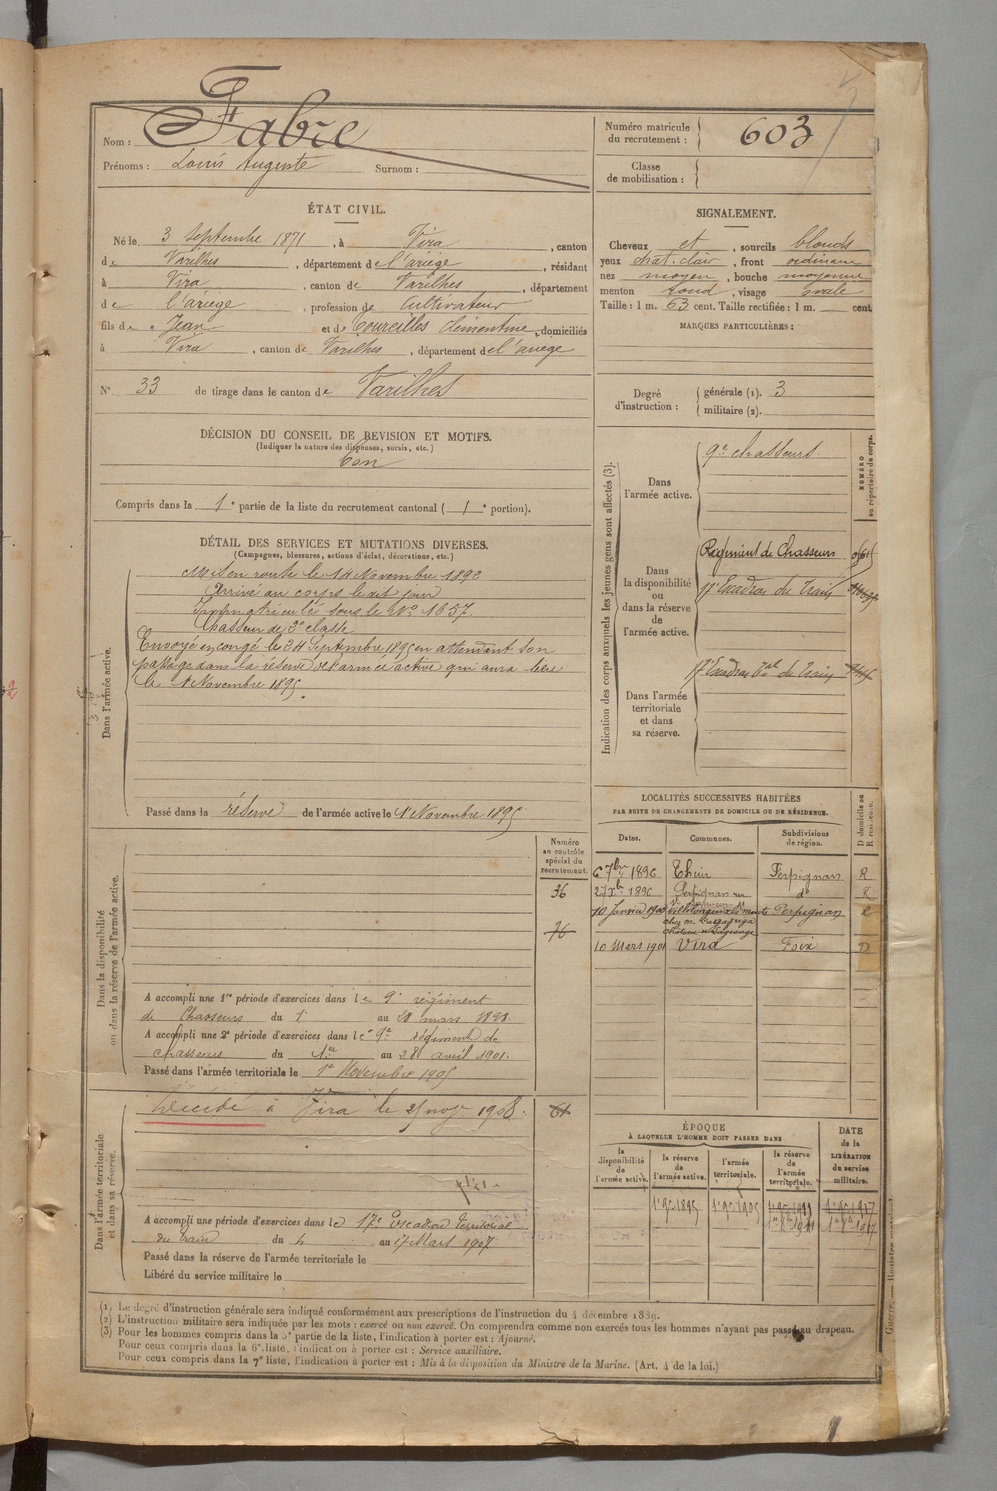 Nom : Fabre
Prénoms : Louis Augente Surnom :
Numéro matricule
du recrutement : 603
Classe
de mobilisation :
ÉTAT CIVIL.
Né le 3 Septembre 1871, à Vira, canton
de Varilhes, département de l'ariège, résidant
à Vira, canton de Varilhes, département
de l'ariège, profession de Cultivateur
fils de Jean et de Courcilles Clémentine, domiciliés
à Vira, canton de Varilhes, département de l'ariege
N° 33 de tirage dans le canton de Varilhes
DÉCISION DU CONSEIL DE REVISION ET MOTIFS.
(Indiquer la nature des dispenses, sursis, etc.)
bon
Compris dans la 1e partie de la liste du recrutement cantonal (1e portion).
SIGNALEMENT.
Cheveux et, sourcils blonds
yeux chat. clair, front ordinaire
nez moyen, bouche moyenne
menton rond, visage ovale
Taille : 1 m. 63 cent. Taille rectifiée : 1 m. cent
MARQUES PARTICULIÈRES :
Degré
d'instruction :
générale (1). 3
militaire (2).
Indication des corps auxquels les jeunes gens sont affectés (3).
NUMÉRO
au répertoire du corps.
Dans
l'armée active.
9e chasseurs.
Dans
la disponibilité
ou
dans la réserve
de
l'armée active.
Régiment de Chasseurs
17e Escadron du Train
Dans l'armée
territoriale
et dans
sa réserve.
17e Escadron Ter.al du Train
DÉTAIL DES SERVICES ET MUTATIONS DIVERSES.
(Campagnes, blessures, actions d'éclat, décorations, etc.)
Dans l'armée active.
Mis en route le 14 Novembre 1892
Arrivé au corps le dit jour
Immatriculé sous le N° 1657
Chasseur de 2e classe
Envoyé en congé le 24 Septembre 1895 en attendant son
passage dans la réserve de l'armée active qui aura lieu
le 1 Novembre 1895.
Passé dans la réserve de l'armée active le 1 Novembre 1895
Numéro
au contrôle
spécial du
recrutement.
36
76
Dans la disponibilité
ou dans la réserve de l'armée active.
A accompli une 1re période d'exercices dans le 9e régiment
de Chasseurs du 1 au 28 mars 1898.
A accompli une 2e période d'exercices dans le 9e régiment de
chasseurs du 1er au 28 avril 1901.
Passé dans l'armée territoriale le 1e Novembre 1905
Dans l'armée territoriale
et dans sa réserve.
Décédé à Vira le 25 nov. 1908.
61
A accompli une période d'exercices dans le 17e Escadron Territorial
du Train du 4 au 17 Mars 1907
Passé dans la réserve de l'armée territoriale le
Libéré du service militaire le
LOCALITÉS SUCCESSIVES HABITÉES
PAR SUITE DE CHANGEMENTS DE DOMICILE OU DE RÉSIDENCE.
Dates. Communes. Subdivisions
de région. D domicile ou
R résidence.
6 7bre 1896 Thuir Perpignan R
27 Xbre 1896 Perpignan rue do R
10 Janvier 1900 Perpignan
10 Mars 1901 Vira Foix D
ÉPOQUE
À LAQUELLE L'HOMME DOIT PASSER DANS
la
disponibilité
de
l'armée active.
la réserve
de
l'armée active.
l'armée
territoriale.
la réserve
de
l'armée
territoriale.
DATE
de la
LIBÉRATION
du service
militaire.
1er 9bre 1895 1er 9bre 1905
(1) Le degré d'instruction générale sera indiqué conformément aux prescriptions de l'instruction du 4 décembre 1889.
(2) L'instruction militaire sera indiquée par les mots : exercé ou non exercé. On comprendra comme non exercés tous les hommes n'ayant pas passé au drapeau.
(3) Pour les hommes compris dans la 5e partie de la liste, l'indication à porter est : Ajourné.
Pour ceux compris dans la 6e liste, l'indication à porter est : Service auxiliaire.
Pour ceux compris dans la 7e liste, l'indication à porter est : Mis à la disposition du Ministre de la Marine. (Art. 4 de la loi.)